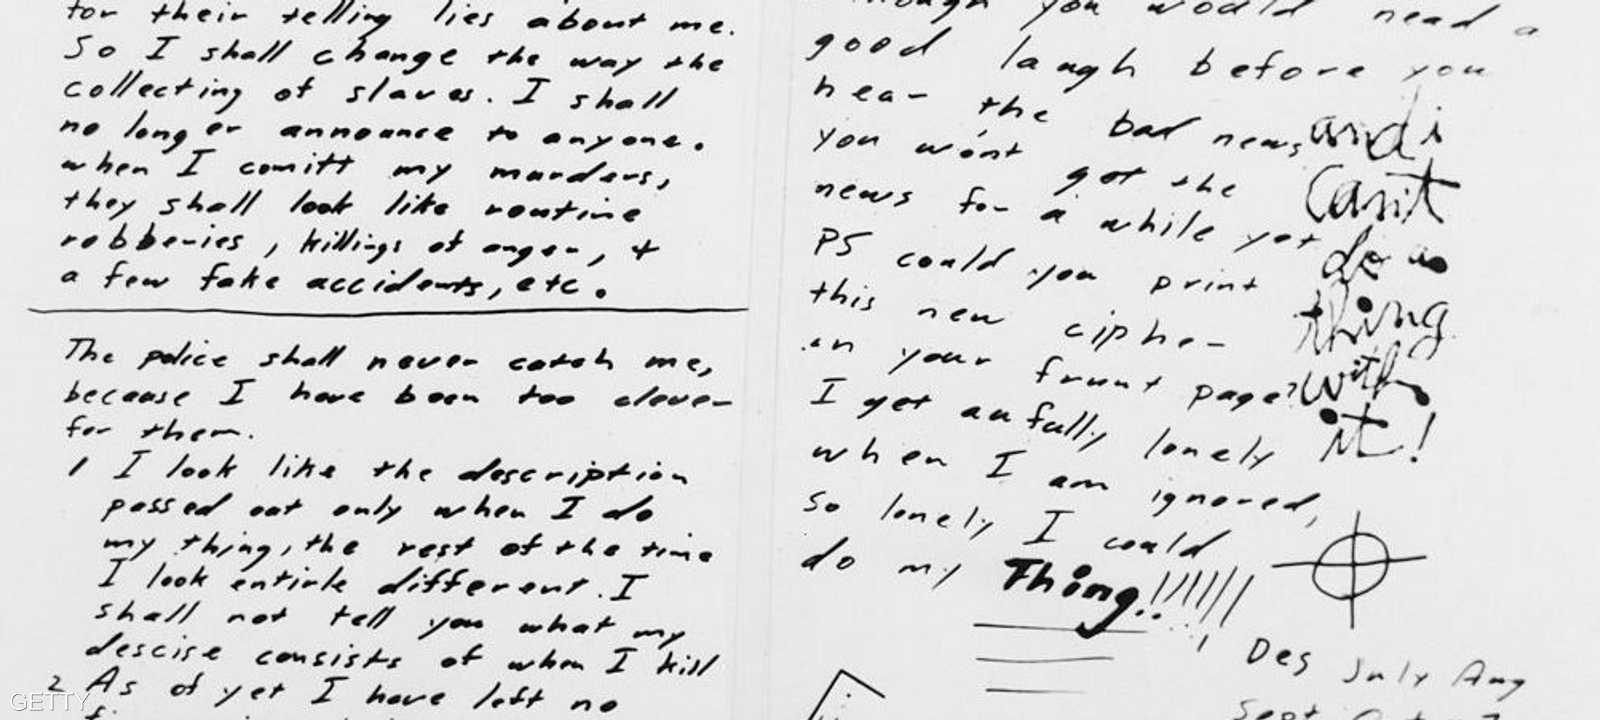 for their telling lies about me.
So I shall change the way the
collecting of slaves. I shall
no longer announce to anyone.
when I comitt my murders,
they shall look like routine
robberies, killings of anger, +
a few fake accidents, etc.
The police shall never catch me,
because I have been too clever
for them.
1 I look like the description
passed out only when I do
my thing, the rest of the time
I look entirle different. I
shall not tell you what my
descise consists of when I kill
2 As of yet I have left no
you would need a
good laugh before you
hear the bad news
you won't get the
news for a while yet
PS could you print
this new cipher
in your frunt page?
I get awfully lonely
when I am ignored,
so lonely I could
do my Thing!!!!!!
and i
can't
do a
thing
with
it!
Des July Aug
Sept Oct
GETTY